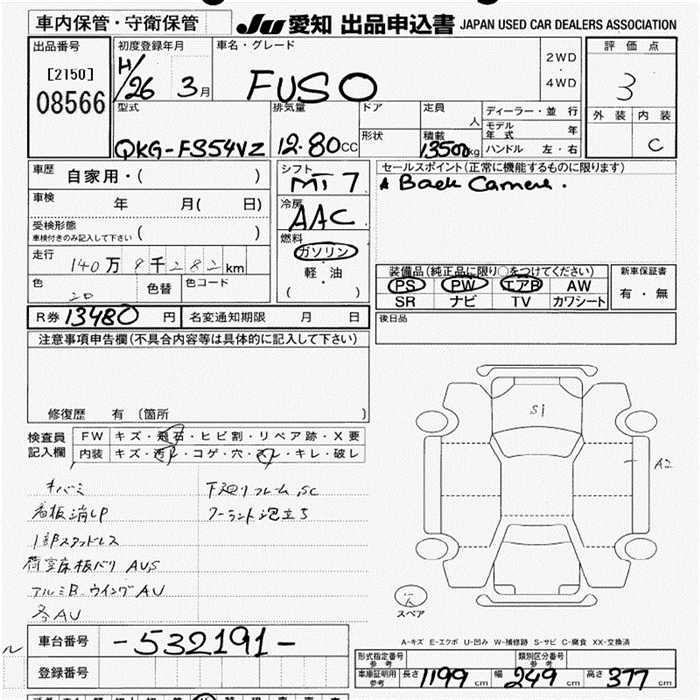 車内保管・守衛保管 JU 愛知 出品申込書 JAPAN USED CAR DEALERS ASSOCIATION
出品番号 初度登録年月 車名・グレード 2WD ・ 4WD 評価点
[2150] 08566 H/26 3月 FUSO 3
外装 内装 C
型式 排気量 ドア 定員 人 ディーラー・並行
形状 積載 モデル年式 年
QKG-FS54VZ 12.80cc 13500kg ハンドル 左・右
車歴 自家用・( ) シフト MT 7 セールスポイント(正常に機能するものに限ります)
Back Camera.
車検 年 月( 日) 冷房 AAC
受検形態 ( )
車検付きのみ記入して下さい
燃料 ガソリン
軽・油
( )
走行 140万 9千282km
色 色替 色コード
装備品(純正品に限り○をつけてください) 新車保証書
PS PW エアB AW 有・無
SR ナビ TV カワシート
R券 13480円 名変通知期限 月 日 後日品
注意事項申告欄(不具合内容等は具体的に記入して下さい)
修復歴 有 (箇所 )
検査員記入欄 FW キズ・飛石・ヒビ割・リペア跡・X要
内装 キズ・汚れ・コゲ・穴・スレ・キレ・破レ
キバミ 下廻りフレームSC
看板消しP クーラント泡立ち
1部スタッドレス
荷室床板ベリ AUS
アルミB.ウイングAU
各AU
Si
A2
スペア
ル
車台番号 -532191-
登録番号
A-キズ E-エクボ U-凹み W-補修跡 S-サビ C-腐食 XX-交換済
形式指定番号 参考 類別区分番号 参考
車庫証明用 参考 長さ 1199cm 幅 249cm 高さ 377cm